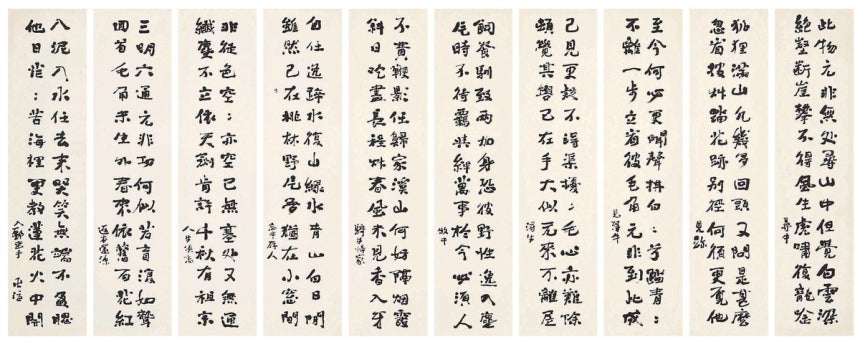 此物元非無處尋山中但覺白雲深
絕壑斷崖攀不得風生虎嘯復龍吟
尋牛
狐狸滿山凡幾多回頭又問是甚麼
忽看披艸踏花跡別徑何須更覓他
見跡
至今何必更聞聲抖白々兮蹈青々
不離一步立看彼毛角元非到此成
見牛
已見更尋不得渠擾々毛心亦難除
頓覺其轡已在手大似元來不離屋
得牛
飼養馴致兩加身恐彼野性逸入塵
片時不待羈鎖絆萬事於今必須人
牧牛
不費鞭影任歸家溪山何妨隔烟霞
斜日吃盡長程艸春風未見香入牙
騎牛歸家
自任逍蹄水復山綠水青山白日閒
雖然已在桃林野片夢猶在小窓間
忘牛存人
非徒色空々亦空已無塞處又無通
纖塵不立依天劍肯許千秋有祖宗
人牛俱忘
三明六通元非功何似若盲復如聾
回首毛角未生外春來依舊百花紅
返本還源
入泥入水任去來哭笑無端不盈腮
他日茫々苦海裡更教蓮花火中開
入鄽垂手